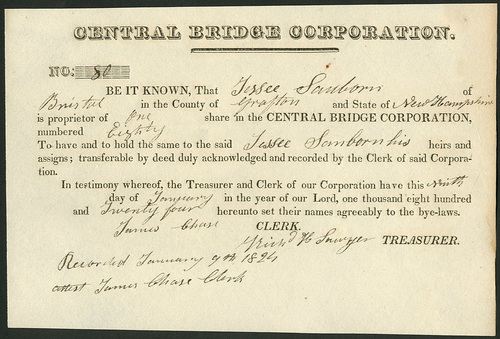 CENTRAL BRIDGE CORPORATION.
NO. 80
BE IT KNOWN, That Jessee Sanborn of
Bristol in the County of Grafton and State of New Hampshire
is proprietor of One share in the CENTRAL BRIDGE CORPORATION,
numbered Eighty
To have and to hold the same to the said Jessee Sanborn his heirs and
assigns; transferable by deed duly acknowledged and recorded by the Clerk of said Corpora-
tion.
In testimony whereof, the Treasurer and Clerk of our Corporation have this ninth
day of January in the year of our Lord, one thousand eight hundred
and Twenty four hereunto set their names agreeably to the bye-laws.
James Chase CLERK.
Rich'd H Sawyer TREASURER.
Recorded January 9th 1824
attest James Chase Clerk